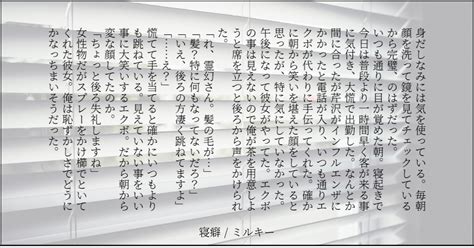 身だしなみには気を使っている。毎朝
顔を洗って鏡を見てチェックしている
から完璧、のはずだった。
いつも通りに目が覚めた朝。寝起きで
今日は普段より一時間早く客が来る事
に気付き、大慌で出勤した。なんとか
間に合ったが芹沢がインフルエンザに
かかったと電話が入り、いつも通りエ
クボが代わりに手伝ってくれた。確か
に朝から笑いを堪えた顔をしていると
思ったが、特に気にしていなかった。
午後になって彼女がやってきた。エクボ
の事は見えないので俺が茶を用意しよ
うと席を立つと後ろから声をかけられ
た。
「れ、霊幻さん。髪の毛が…」
「髪？特に何もなってないだろ？」
「いえ、後ろの方凄く跳ねてますよ」
「……え？」
慌てて手を当てると確かにいつもより
も跳ねている。見えていない事をいい
事に大笑いするエクボ。だから朝から
変な顔してたのか。
「ちょっと後ろ失礼しますね」
女性物だがスプレーをかけ櫛でといて
くれた彼女。俺は恥ずかしさでどうに
かなっちまいそうだった。
寝癖 / ミルキー